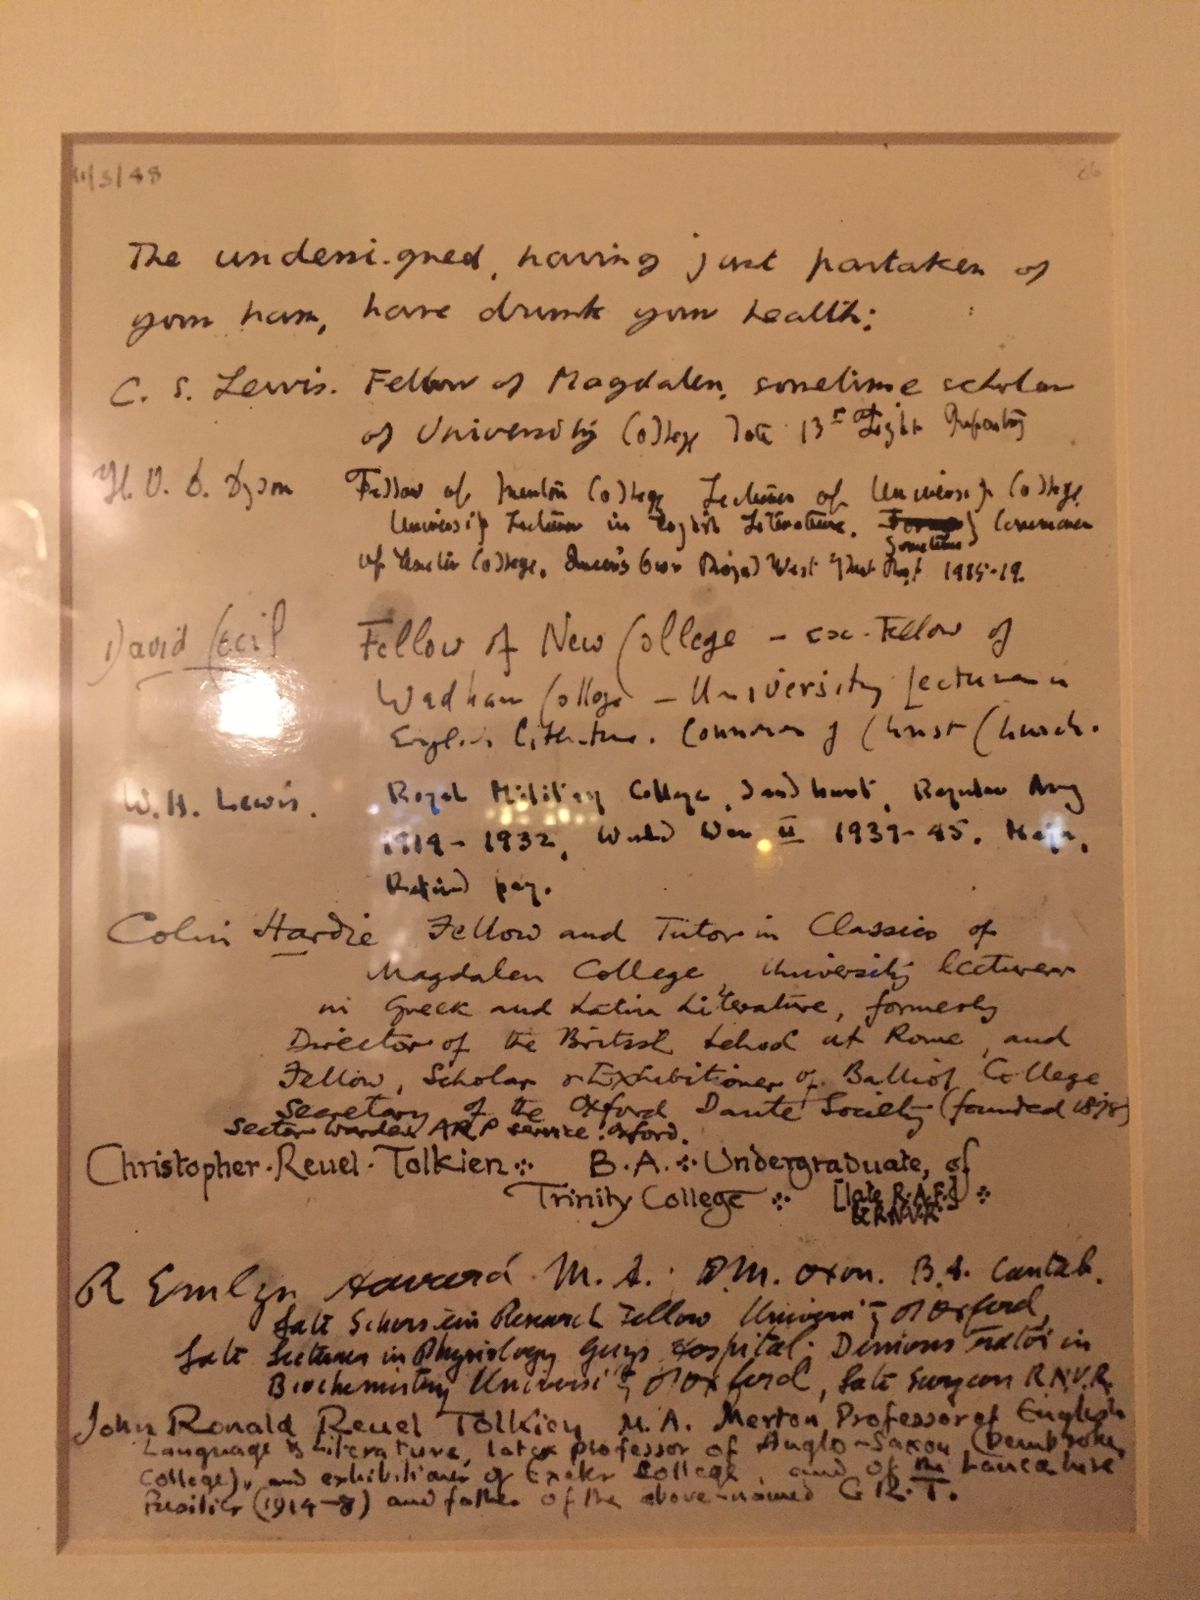 11/3/48
26
The undersigned, having just partaken of
your ham, have drunk your health:
C. S. Lewis. Fellow of Magdalen, sometime scholar
of University College late 13th Light Infantry
H. V. D. Dyson Fellow of Merton College Lecturer of University College
University Lecturer in English Literature. Sometime Commoner
of Exeter College. Queen's Own Royal West Kent Regt 1915-19.
David Cecil Fellow of New College - ex-Fellow of
Wadham College - University Lecturer in
English Literature. Commoner of Christ Church.
W.H. Lewis. Royal Military College, Sandhurst, Regular Army
1914-1932, World War II 1939-45. Major,
Retired pay.
Colin Hardie Fellow and Tutor in Classics of
Magdalen College, University lecturer
in Greek and Latin Literature, formerly
Director of the British School at Rome, and
Fellow, Scholar & Exhibitioner of Balliol College
Secretary of the Oxford Dante Society (founded 1876)
Sector Warden ARP service Oxford.
Christopher·Reuel·Tolkien B.A. Undergraduate, of
Trinity College [late R.A.F.]
& R.N.V.R.
R Emlyn Havard M.A. D.M. Oxon. B.A. Cantab.
Late Schorstein Research Fellow University of Oxford
Late Lecturer in Physiology Guys Hospital; Demonstrator in
Biochemistry University of Oxford, Late Surgeon R.N.V.R.
John Ronald Reuel Tolkien M.A. Merton Professor of English
Language & Literature, late professor of Anglo-Saxon (Pembroke
College), and exhibitioner of Exeter College, and of the Lancashire
Fusiliers (1914-8) and father of the above-named C.R.T.